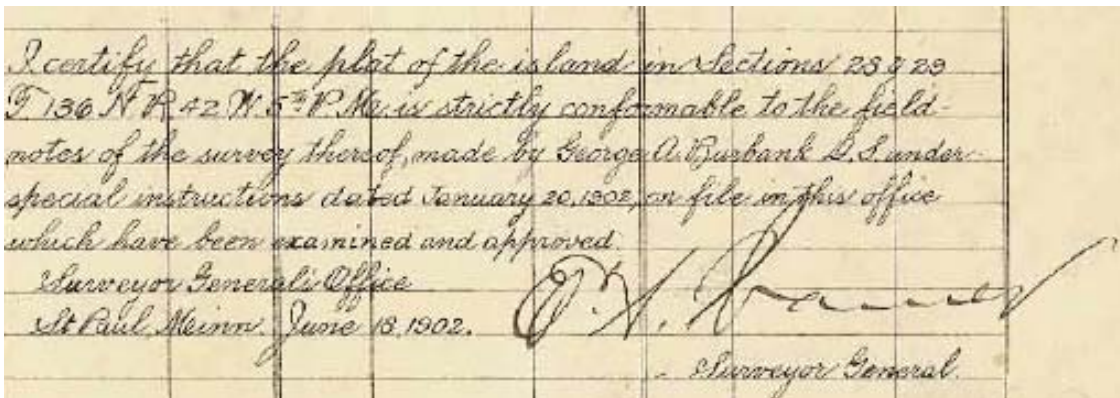 I certify that the plat of the island in Sections 28 & 29
T 136 N. R. 42 W. 5th P. M. is strictly conformable to the field
notes of the survey thereof, made by George A. Burbank D. S. under
special instructions dated January 20, 1902, on file in this office
which have been examined and approved.
Surveyor General's Office
St Paul, Minn. June 18, 1902.
Surveyor General.